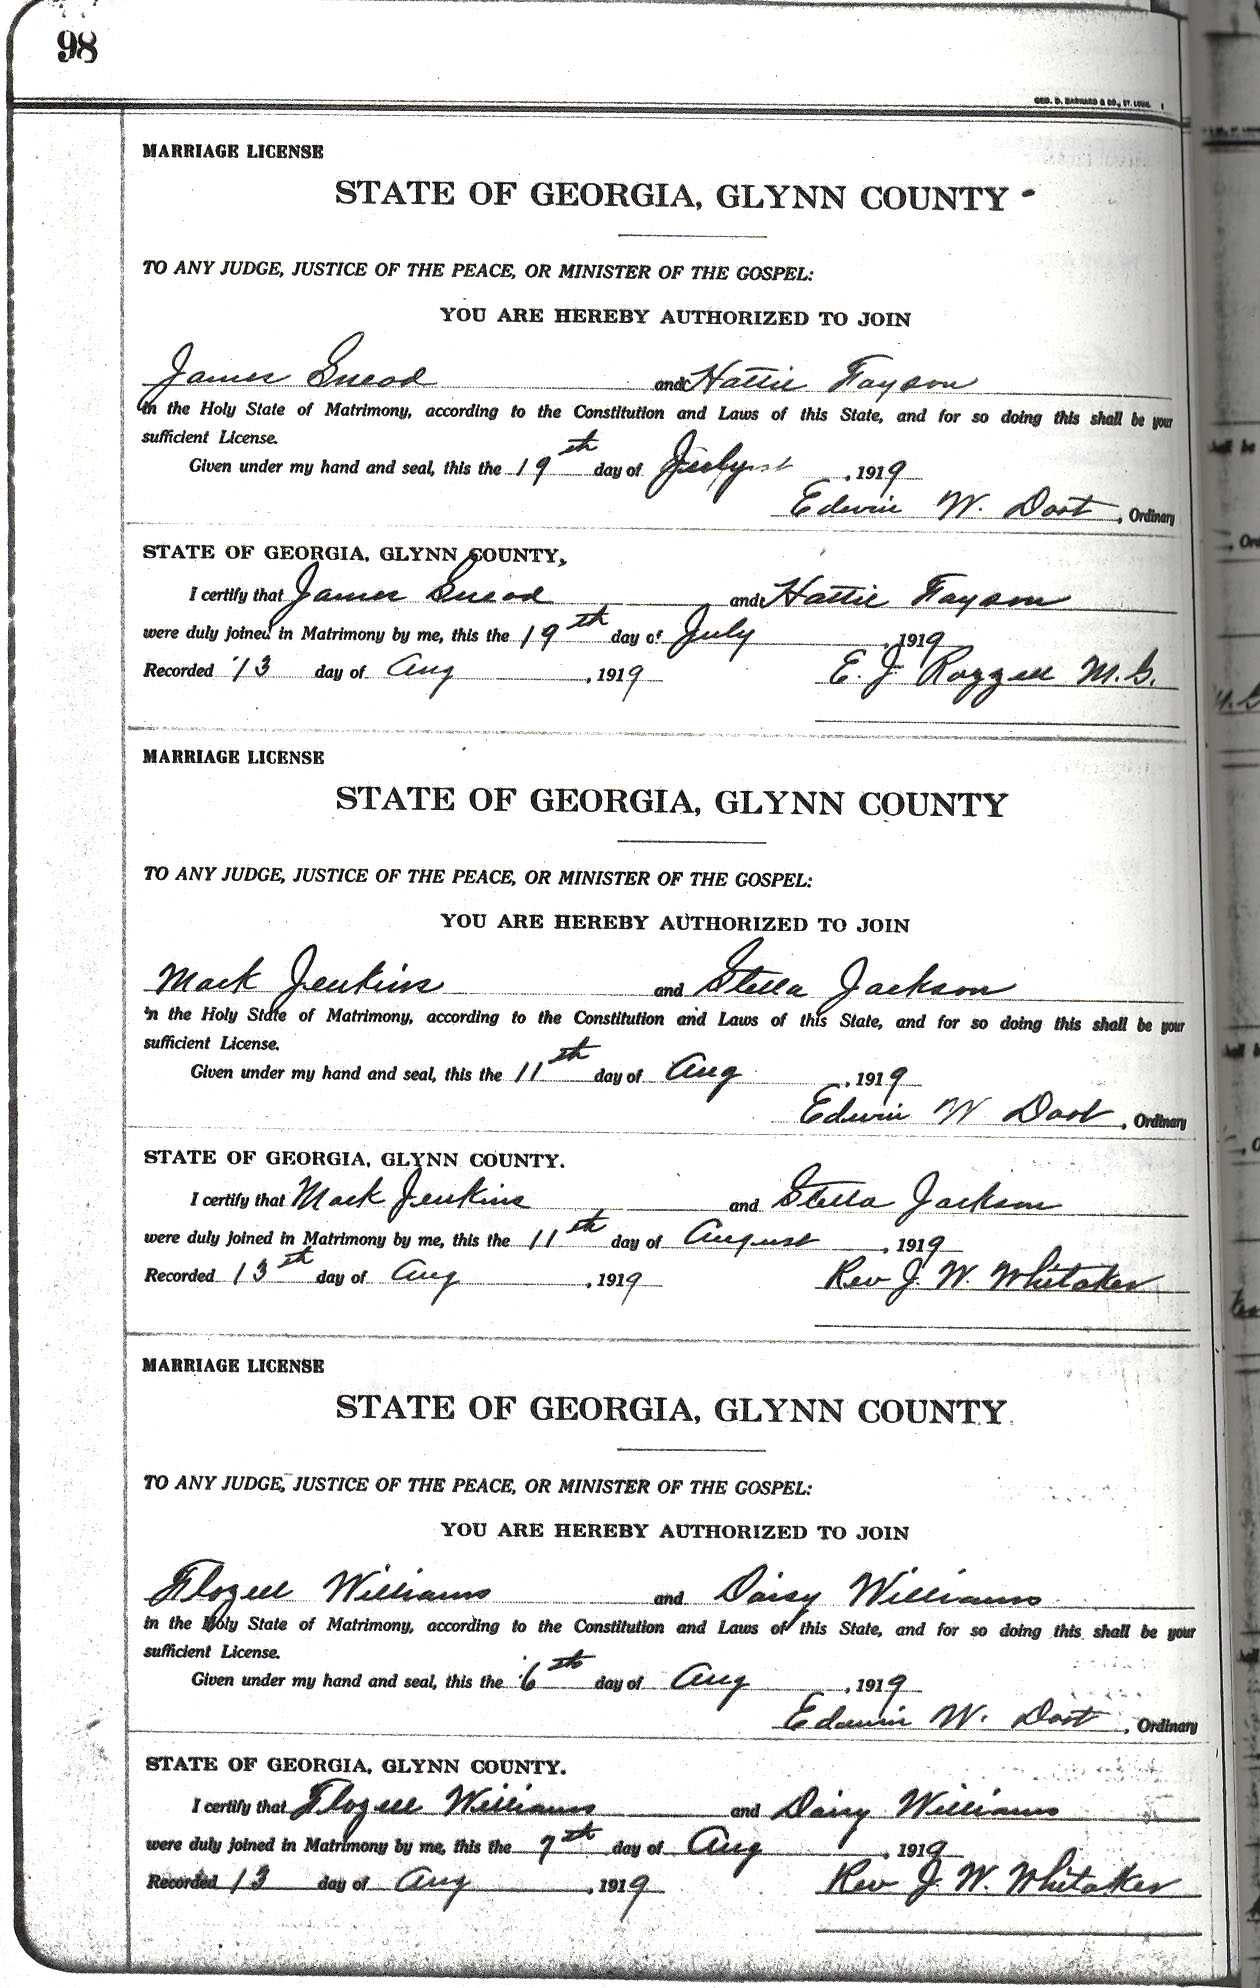 98
GEO. D. BARNARD & CO., ST. LOUIS.
MARRIAGE LICENSE
STATE OF GEORGIA, GLYNN COUNTY
TO ANY JUDGE, JUSTICE OF THE PEACE, OR MINISTER OF THE GOSPEL:
YOU ARE HEREBY AUTHORIZED TO JOIN
James Snead and Hattie Fayson
in the Holy State of Matrimony, according to the Constitution and Laws of this State, and for so doing this shall be your
sufficient License.
Given under my hand and seal, this the 19th day of July, 1919
Edwin W. Dart, Ordinary
STATE OF GEORGIA, GLYNN COUNTY,
I certify that James Snead and Hattie Fayson
were duly joined in Matrimony by me, this the 19th day of July, 1919
Recorded 13 day of Aug, 1919 E. J. Rozzell M.G.
MARRIAGE LICENSE
STATE OF GEORGIA, GLYNN COUNTY
TO ANY JUDGE, JUSTICE OF THE PEACE, OR MINISTER OF THE GOSPEL:
YOU ARE HEREBY AUTHORIZED TO JOIN
Mack Jenkins and Stella Jackson
in the Holy State of Matrimony, according to the Constitution and Laws of this State, and for so doing this shall be your
sufficient License.
Given under my hand and seal, this the 11th day of Aug, 1919
Edwin W Dart, Ordinary
STATE OF GEORGIA, GLYNN COUNTY.
I certify that Mack Jenkins and Stella Jackson
were duly joined in Matrimony by me, this the 11th day of August, 1919
Recorded 13th day of Aug, 1919 Rev J. W. Whitaker
MARRIAGE LICENSE
STATE OF GEORGIA, GLYNN COUNTY
TO ANY JUDGE, JUSTICE OF THE PEACE, OR MINISTER OF THE GOSPEL:
YOU ARE HEREBY AUTHORIZED TO JOIN
Flozell Williams and Daisy Williams
in the Holy State of Matrimony, according to the Constitution and Laws of this State, and for so doing this shall be your
sufficient License.
Given under my hand and seal, this the 6th day of Aug, 1919
Edwin W. Dart, Ordinary
STATE OF GEORGIA, GLYNN COUNTY.
I certify that Flozell Williams and Daisy Williams
were duly joined in Matrimony by me, this the 7th day of Aug, 1919
Recorded 13 day of Aug, 1919 Rev J. W. Whitaker